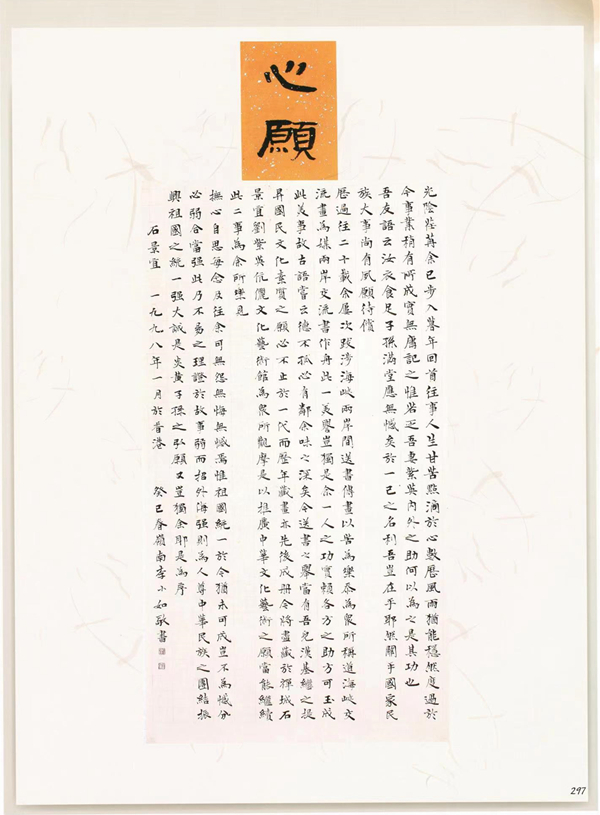 心願
光陰荏苒余已步入暮年回首往事人生甘苦點滴於心數歷風雨猶能穩然度過於
今事業稍有所成實無庸記之惟若乏吾妻紫英內外之助何以為之是其功也
吾友語云汝衣食足子孫滿堂應無憾矣於一己之名利吾豈在乎耶無關乎國家民
族大事尚有夙願待償
歷過往二十載余屢次跋涉海峽兩岸間送書傳畫以苦為樂忝為眾所稱道海峽文
流畫為媒兩岸交流書作舟此一美譽豈獨是余一人之功實賴各方之助方可玉成
此美事故古語嘗云德不孤必有鄰余味之深矣今送書之舉當有吾兒漢基繼之提
昇國民文化素質之願必不止於一代而歷年藏畫亦先後成冊今將盡藏於禪城石
景宜劉紫英伉儷文化藝術館為眾所觀摩是以推廣中華文化藝術之願當能繼續
此二事為余所樂見
撫心自思每念及往余可無怨無悔無憾焉惟祖國統一於今猶未可成豈不為憾分
必弱合當強此乃不易之理證於故事弱而招外海強則為人尊中華民族之團結振
興祖國之統一強大誠是炎黃子孫之弘願又豈獨余耶是為序
石景宜 一九九八年一月於香港 癸巳春嶺南李小如敬書
297